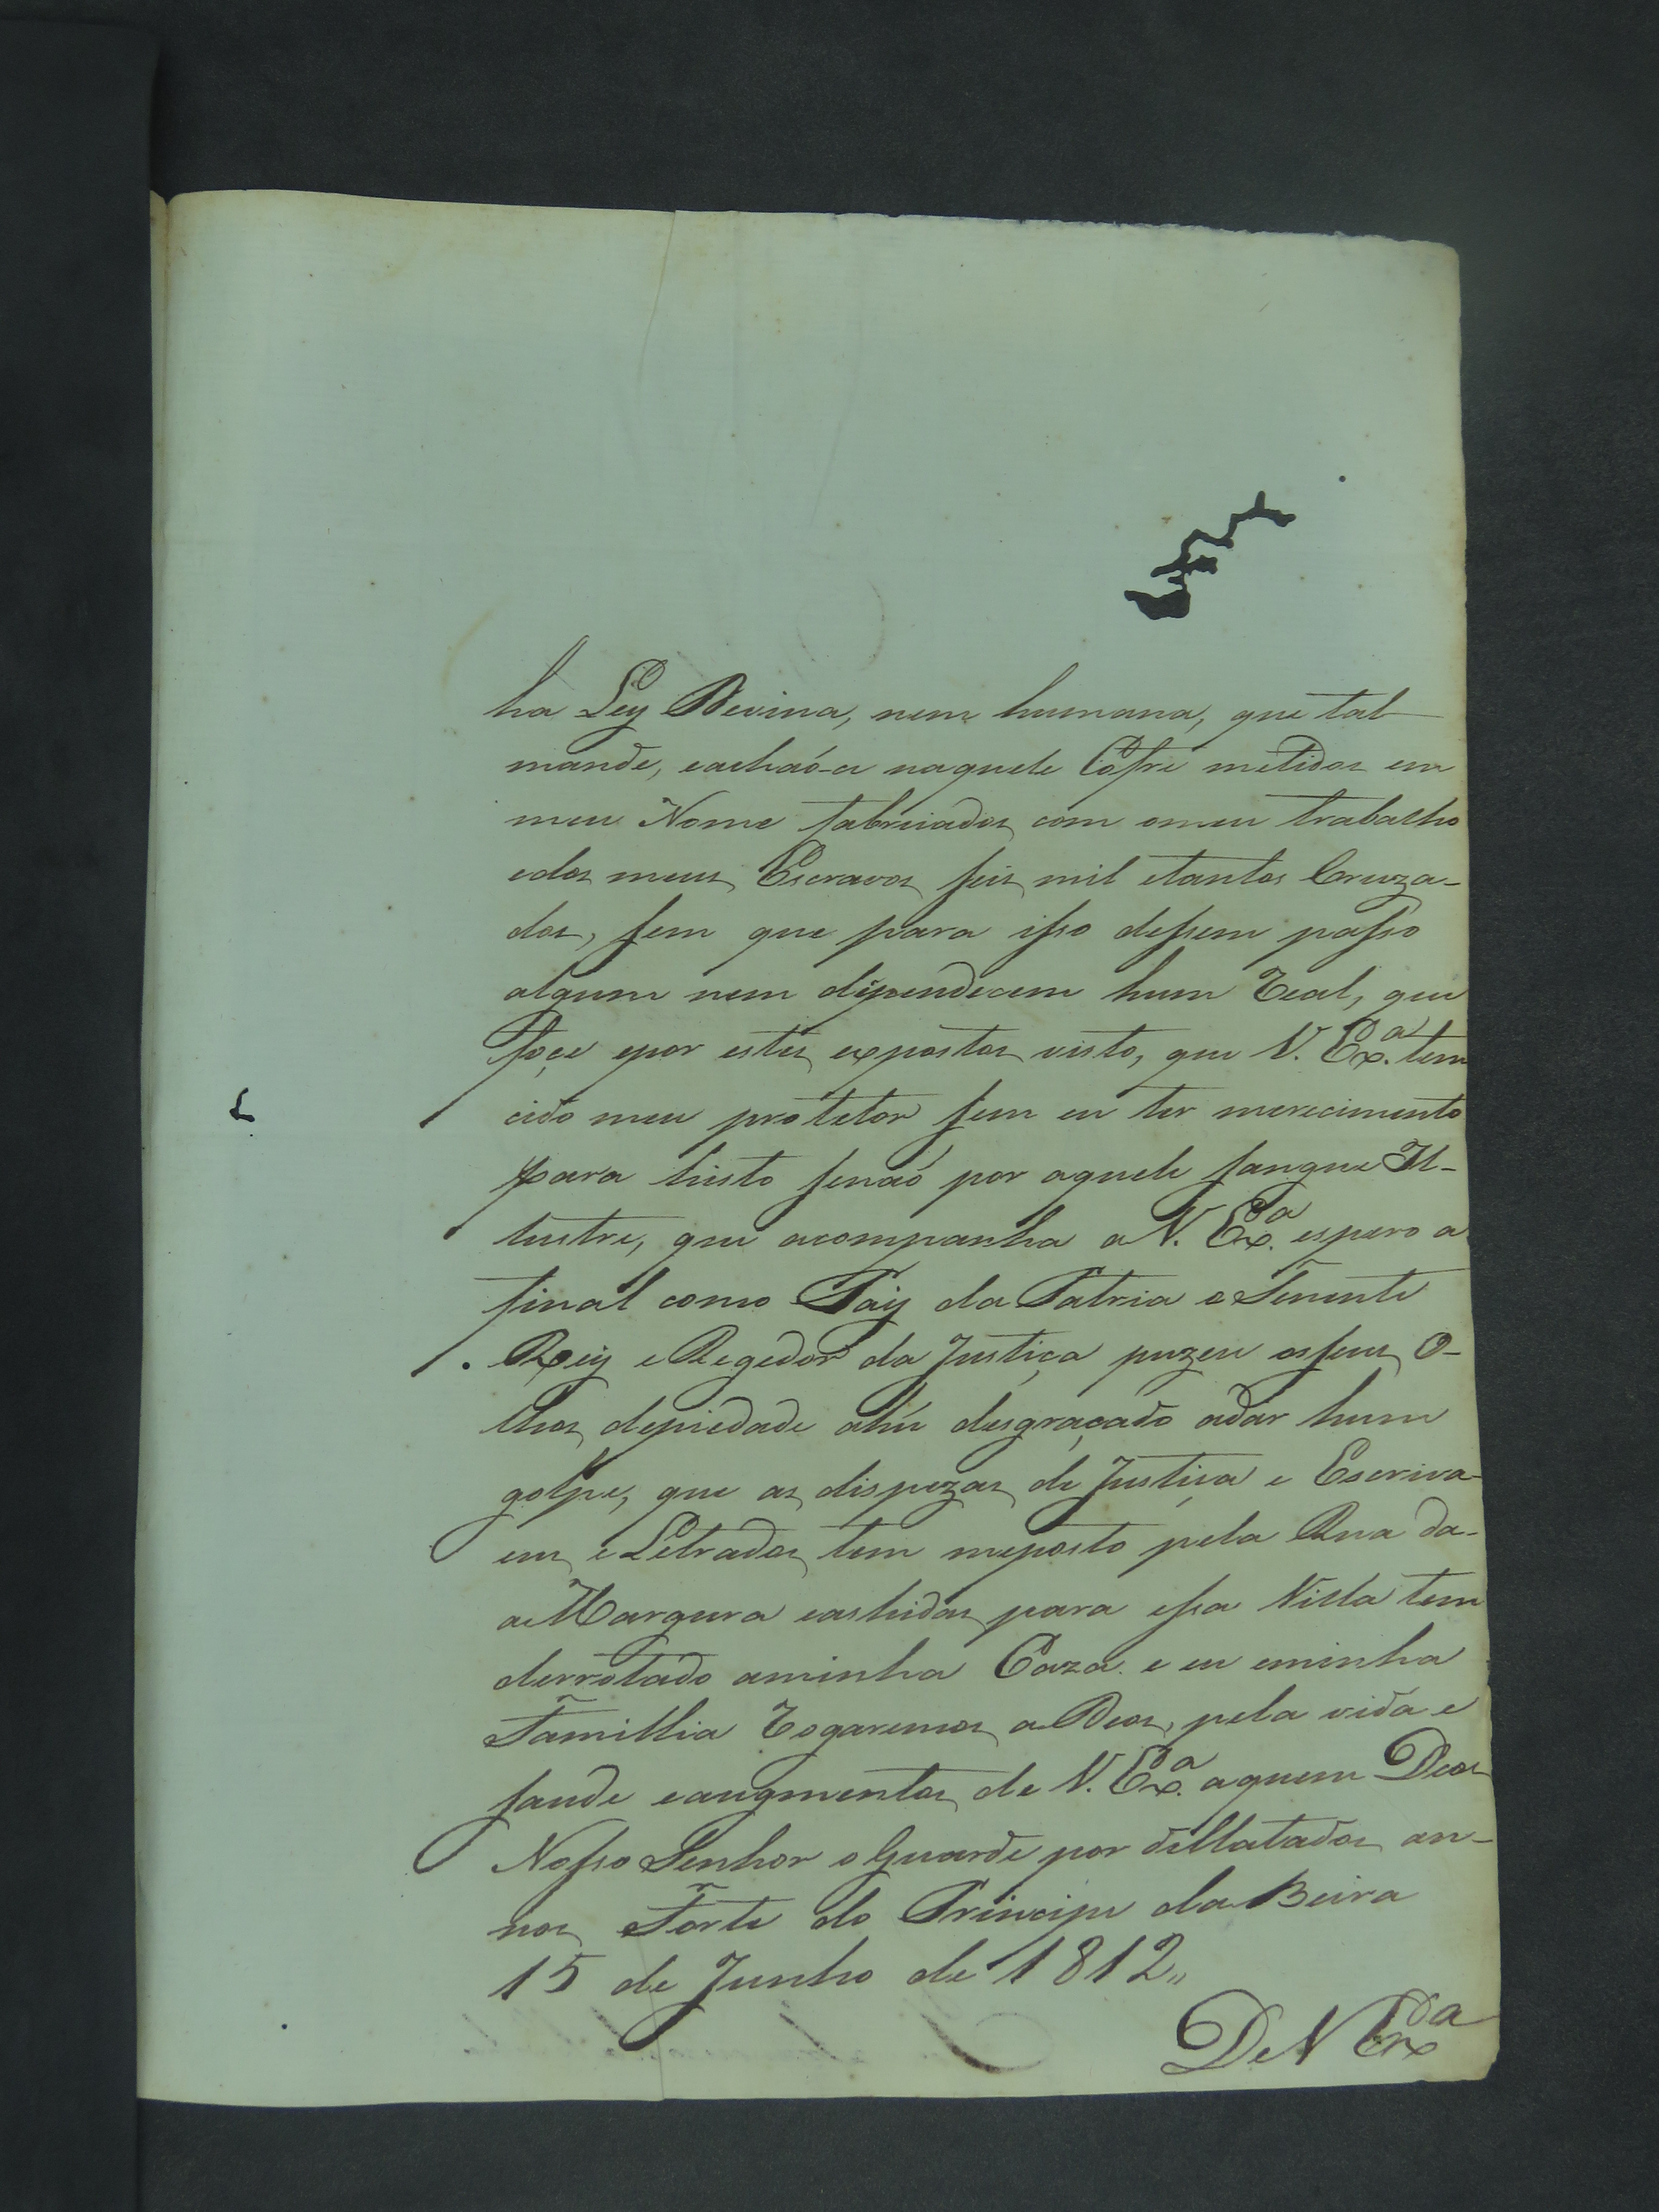 ha Ley Devina, nem humana, que tal
mande, eachaó-a naquele Cofre metidos em
meu Nome fabricados com omeu trabalho
edos meus Escravos seis mil etantos Cruza-
dos, sem que para isso dessem passo
algum nem dipendecem hum Real, que
foçe epor estes expostos visto, que V. Ex.ª tem
cido meu protetor sem eu ter merecimento
para histo senaó por aquele sangue Il-
lustre, que acompanha a V. Ex.ª espero a
final como Pay da Patria e Tenente
Rey e Regedor da Justiça puzeu osseus O-
lhos depiedade ahú desgraçado adar hum
golpe, que as dispezas de Justiça e Escriva-
ens e Letrados tem meposto pela Rua da-
aMargura eashidas para essa Villa tem
derrotado aminha Caza e eu eminha
Famillia Rogaremos a Deos, pela vida e
saude eaugmentos de V. Ex.ª aquem Deos
Nosso Senhor o Guarde por dillatados an-
nos Forte do Principe da Beira
15 de Junho de 1812,,
De V Exª